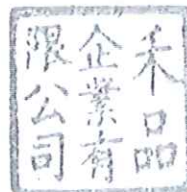 禾品
企業有
限公司